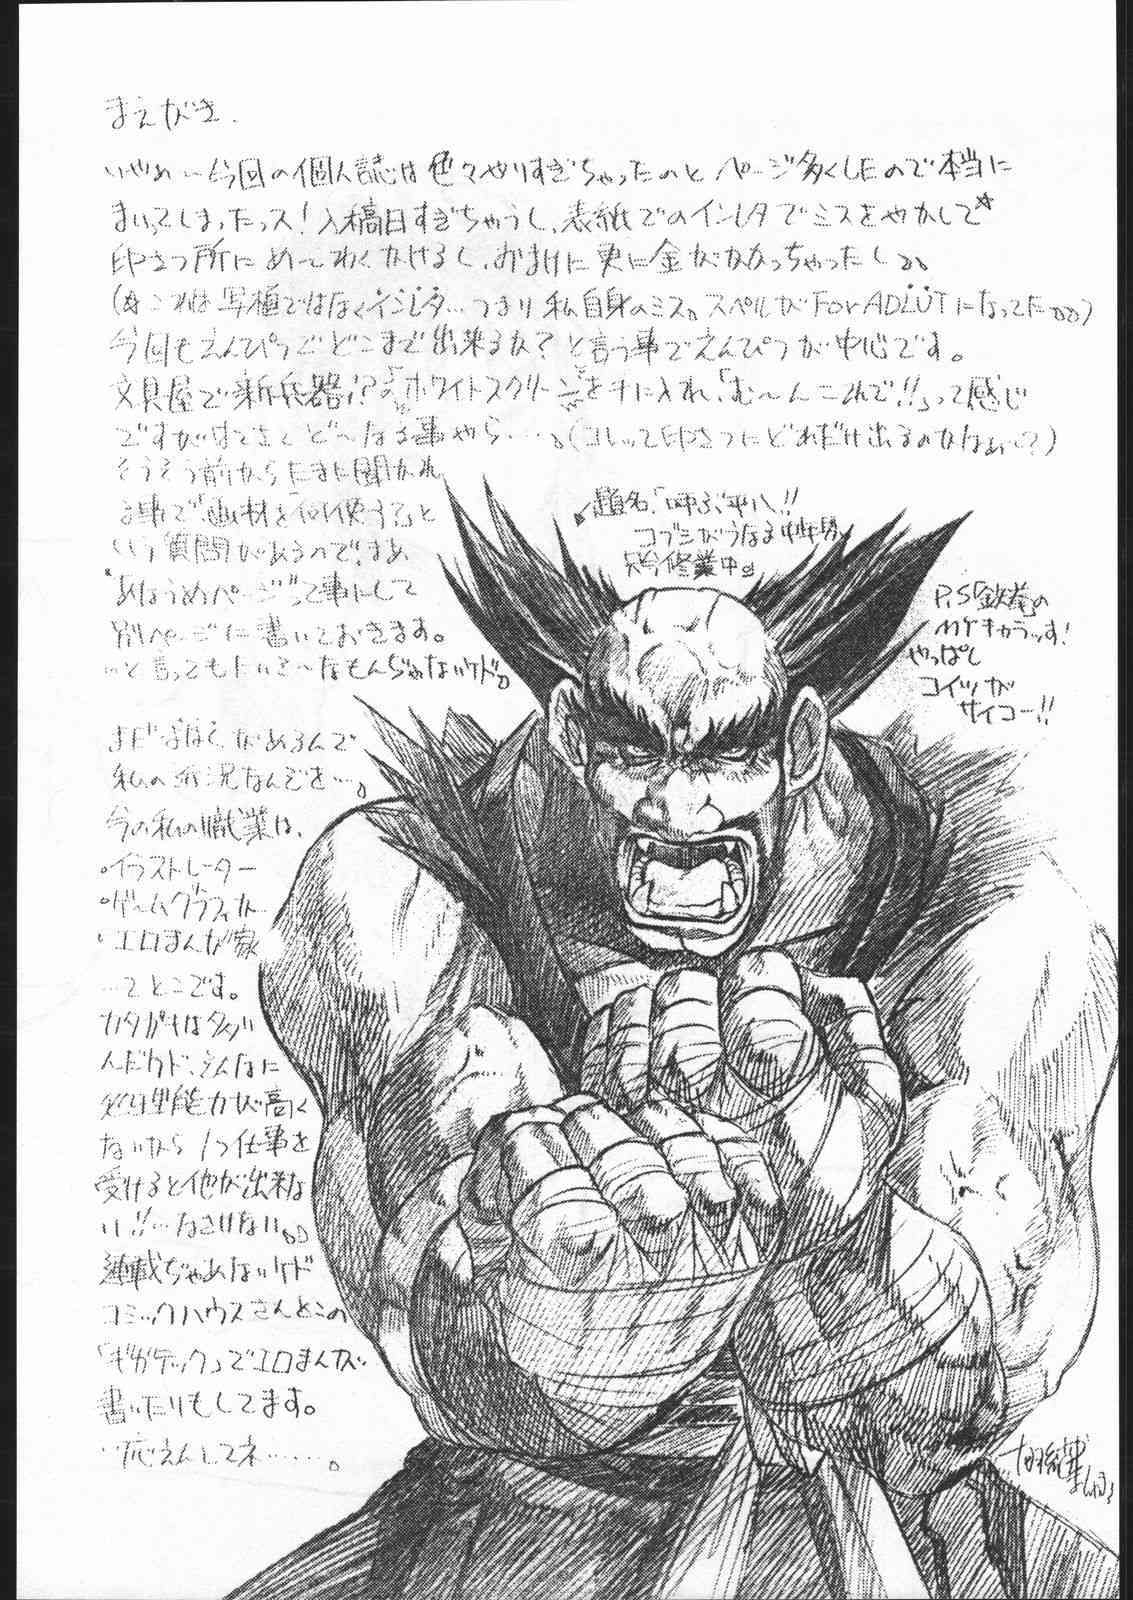 まえがき.
いやぁ…今回の個人誌は色々やりすぎちゃったのとページ多くしたので本当に
まいってしまったっス!入稿日すぎちゃうし、表紙でのインレタでミスをやかして☆
印さつ所にめーわくかけるし、おまけに更に金がかかっちゃったし。
(☆これは写植ではなくインレタ…つまり私自身のミス。スペルがFor ADLUTになってた)
今回もえんぴつでどこまで出来るか?と言う事でえんぴつが中心です。
文具屋で新兵器!?の「ホワイトスクリーン」を手に入れ、「む〜んこれで!!」って感じ
ですがはてさてど〜なる事やら…。(コレって印さつにどれだけ出るのかなぁ…?)
そうそう前からたまに聞かれ
る事で「画材を何使う?」と
いう質問があるので、まぁ
"あなうめページ"って事にして
別ページに書いておきます。
…と言ってもたいそ〜なもんぢゃないケド。
まだよはくがあるんで
私の近況なんぞを…。
今の私の職業は、
・イラストレーター
・ゲームグラフィッカー
・エロまんが家
…てとこです。
カタガキはタダい
んだケド、そんなに
処理能力が高く
ないから1つ仕事を
受けると他が出来な
い!!…なさけない。
連載ぢゃあないケド
コミックハウスさんとこの
「ギガテック」でエロまんが
書いたりもしてます。
…応えんしてネ……。
題名、「叫ぶ平八!!
コブシがうなる
只今修業中」
P.S「鉄拳」の
MYキャラっす!
やっぱし
コイツが
サイコー!!